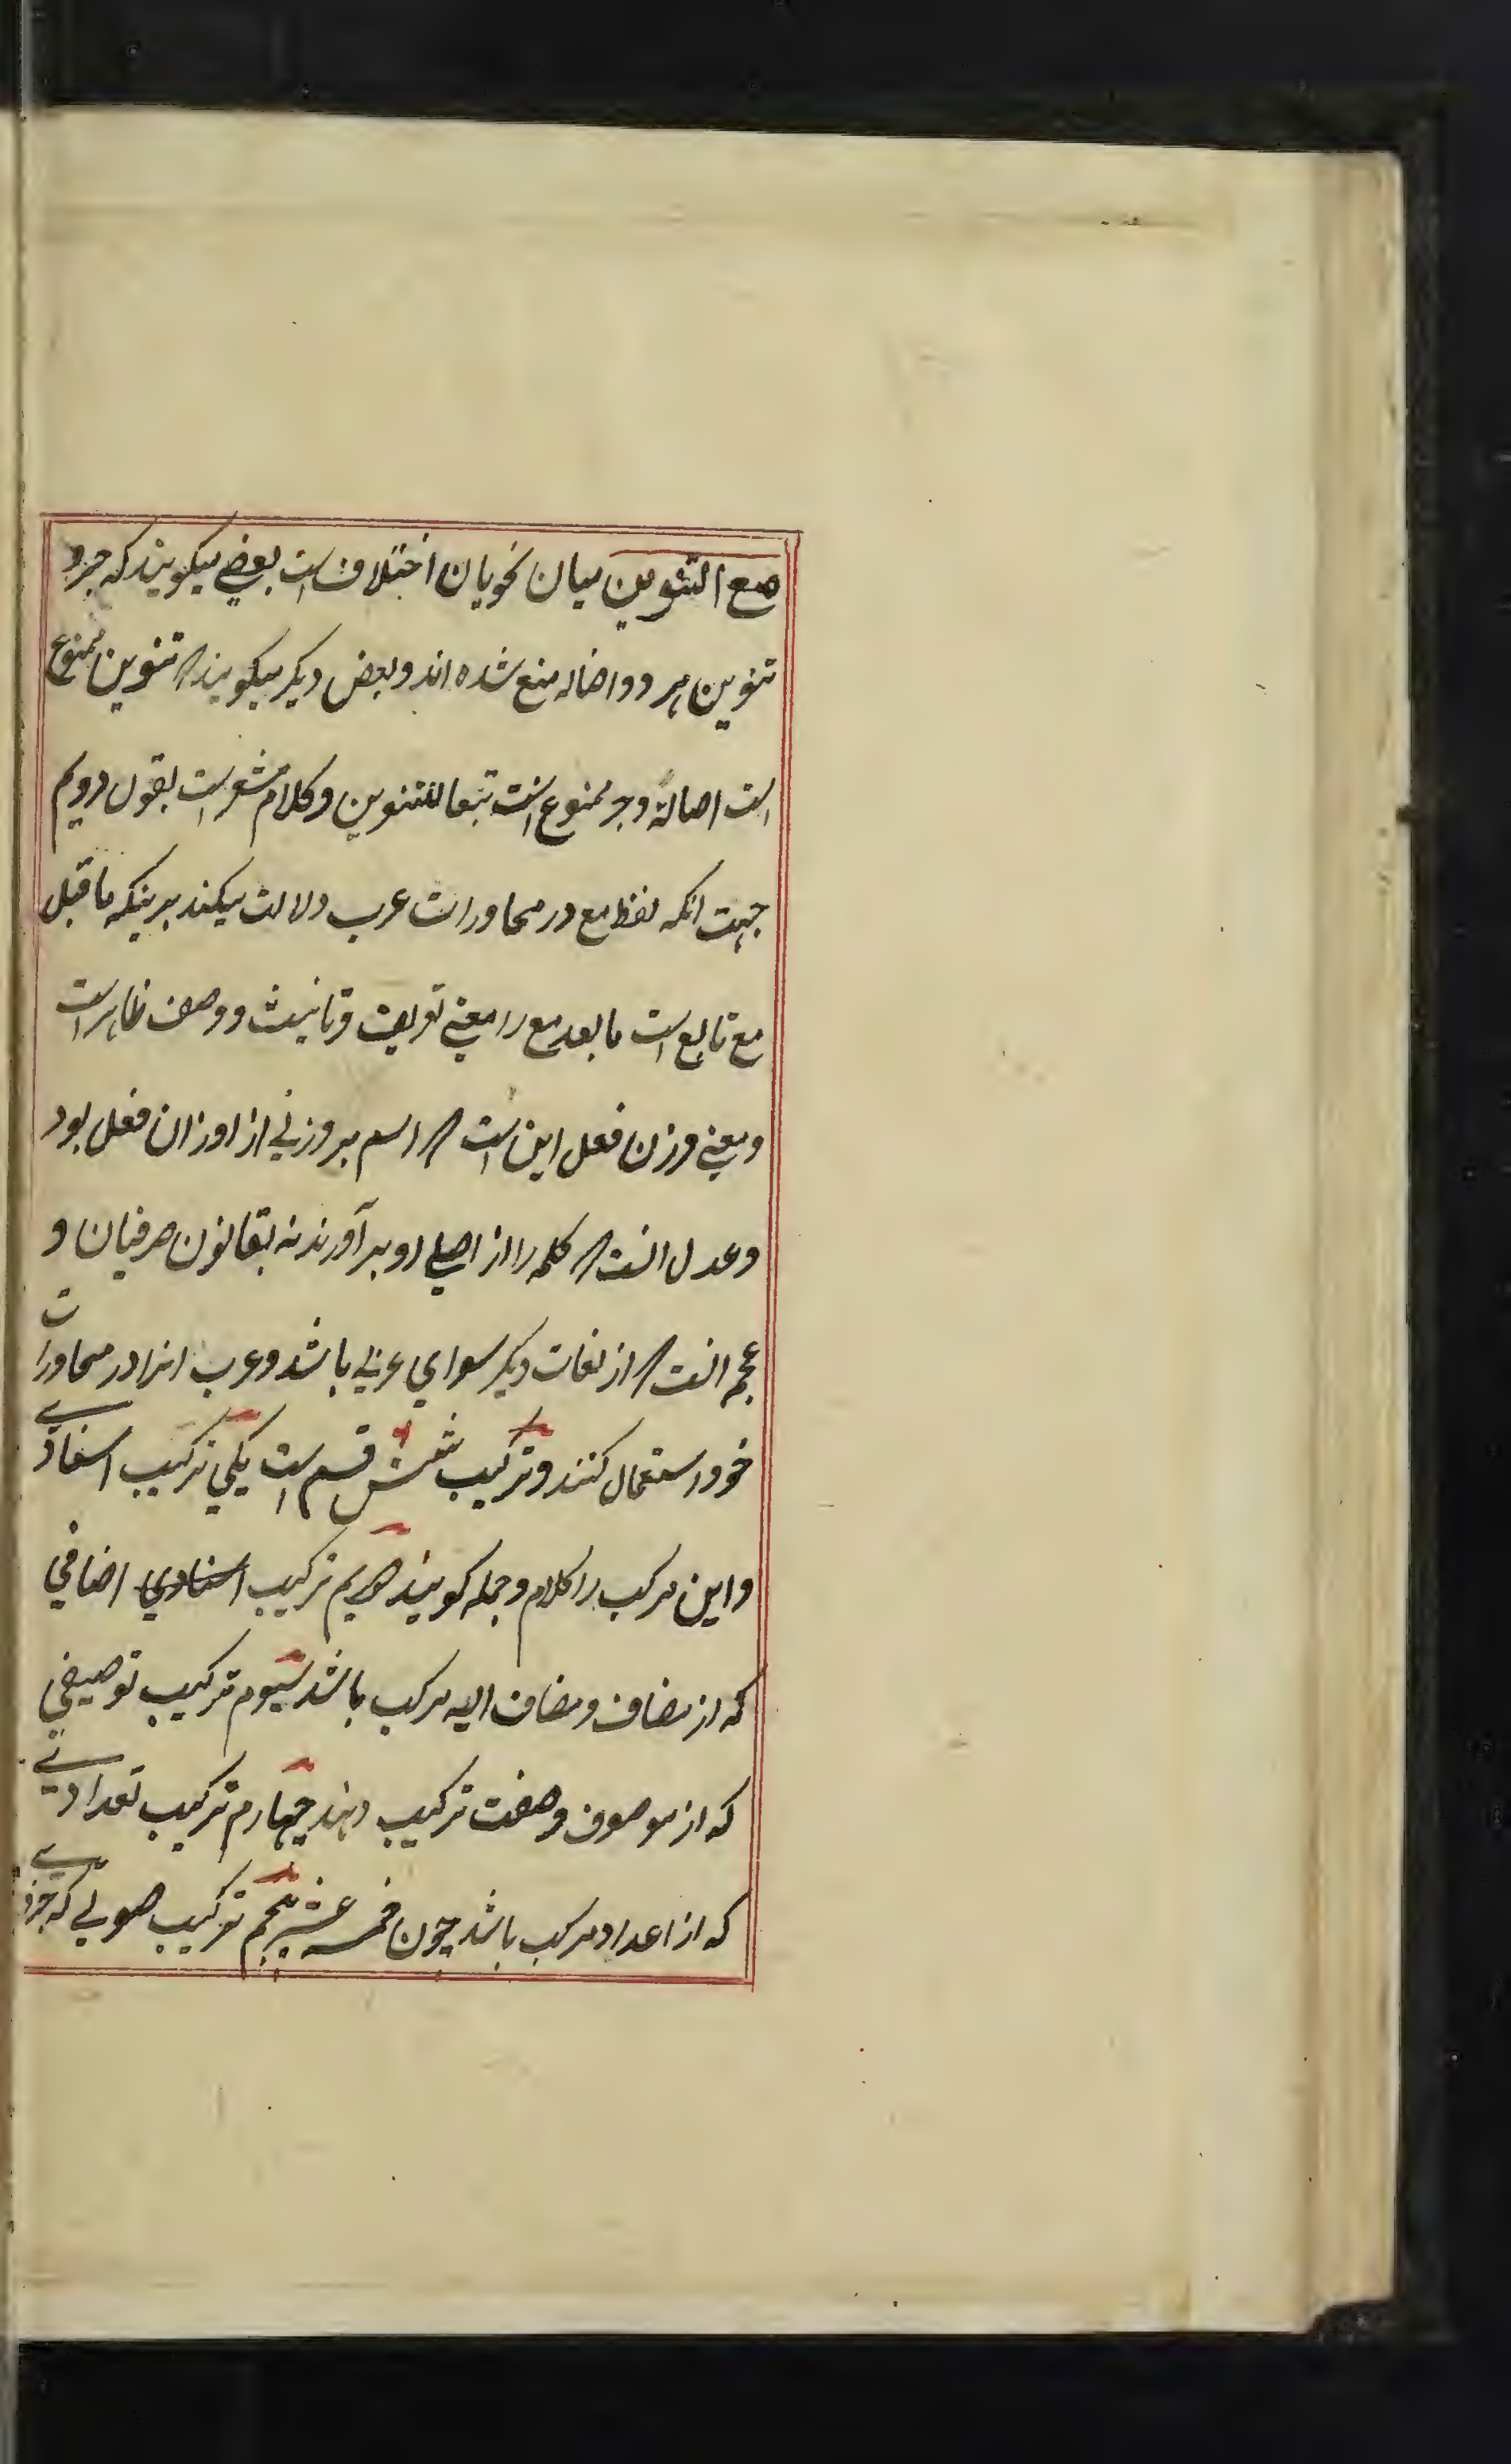 مع التنوین میان نحویان اختلاف است بعضی میکویند که جر و
تنوین هر دو اصاله منع شده اند و بعض دیکر میکویند که تنوین ممنوع
است اصالة و جر ممنوع است تبعا للتنوین و کلام مشعر است بقول دویم
جهت انکه لفظ مع در محاورات عرب دلالت میکند برینکه ما قبل
مع تابع است ما بعد مع را معنی تعریف و تانیث و وصف ظاهر است
و معنی وزن فعل این است که اسم بر وزنی از اوزان فعل بود
و عدل انست که کلمه را از اصلی او بر آورند نه بقانون صرفیان و
عجمه انست که از لغات دیکر سوای عربی باشد و عرب انرا در محاورات
خود استعمال کنند و ترکیب شش قسم است یکی ترکیب اسنادی
و این مرکب را کلام و جمله کویند دویم ترکیب اسنادی اضافی
که از مضاف و مضاف الیه مرکب باشد سیوم ترکیب توصیفی
که از موصوف و صفت ترکیب دهند چهارم ترکیب تعدادی
که از اعداد مرکب باشد چون خمسه عشر پنجم ترکیب صوتی که جزء